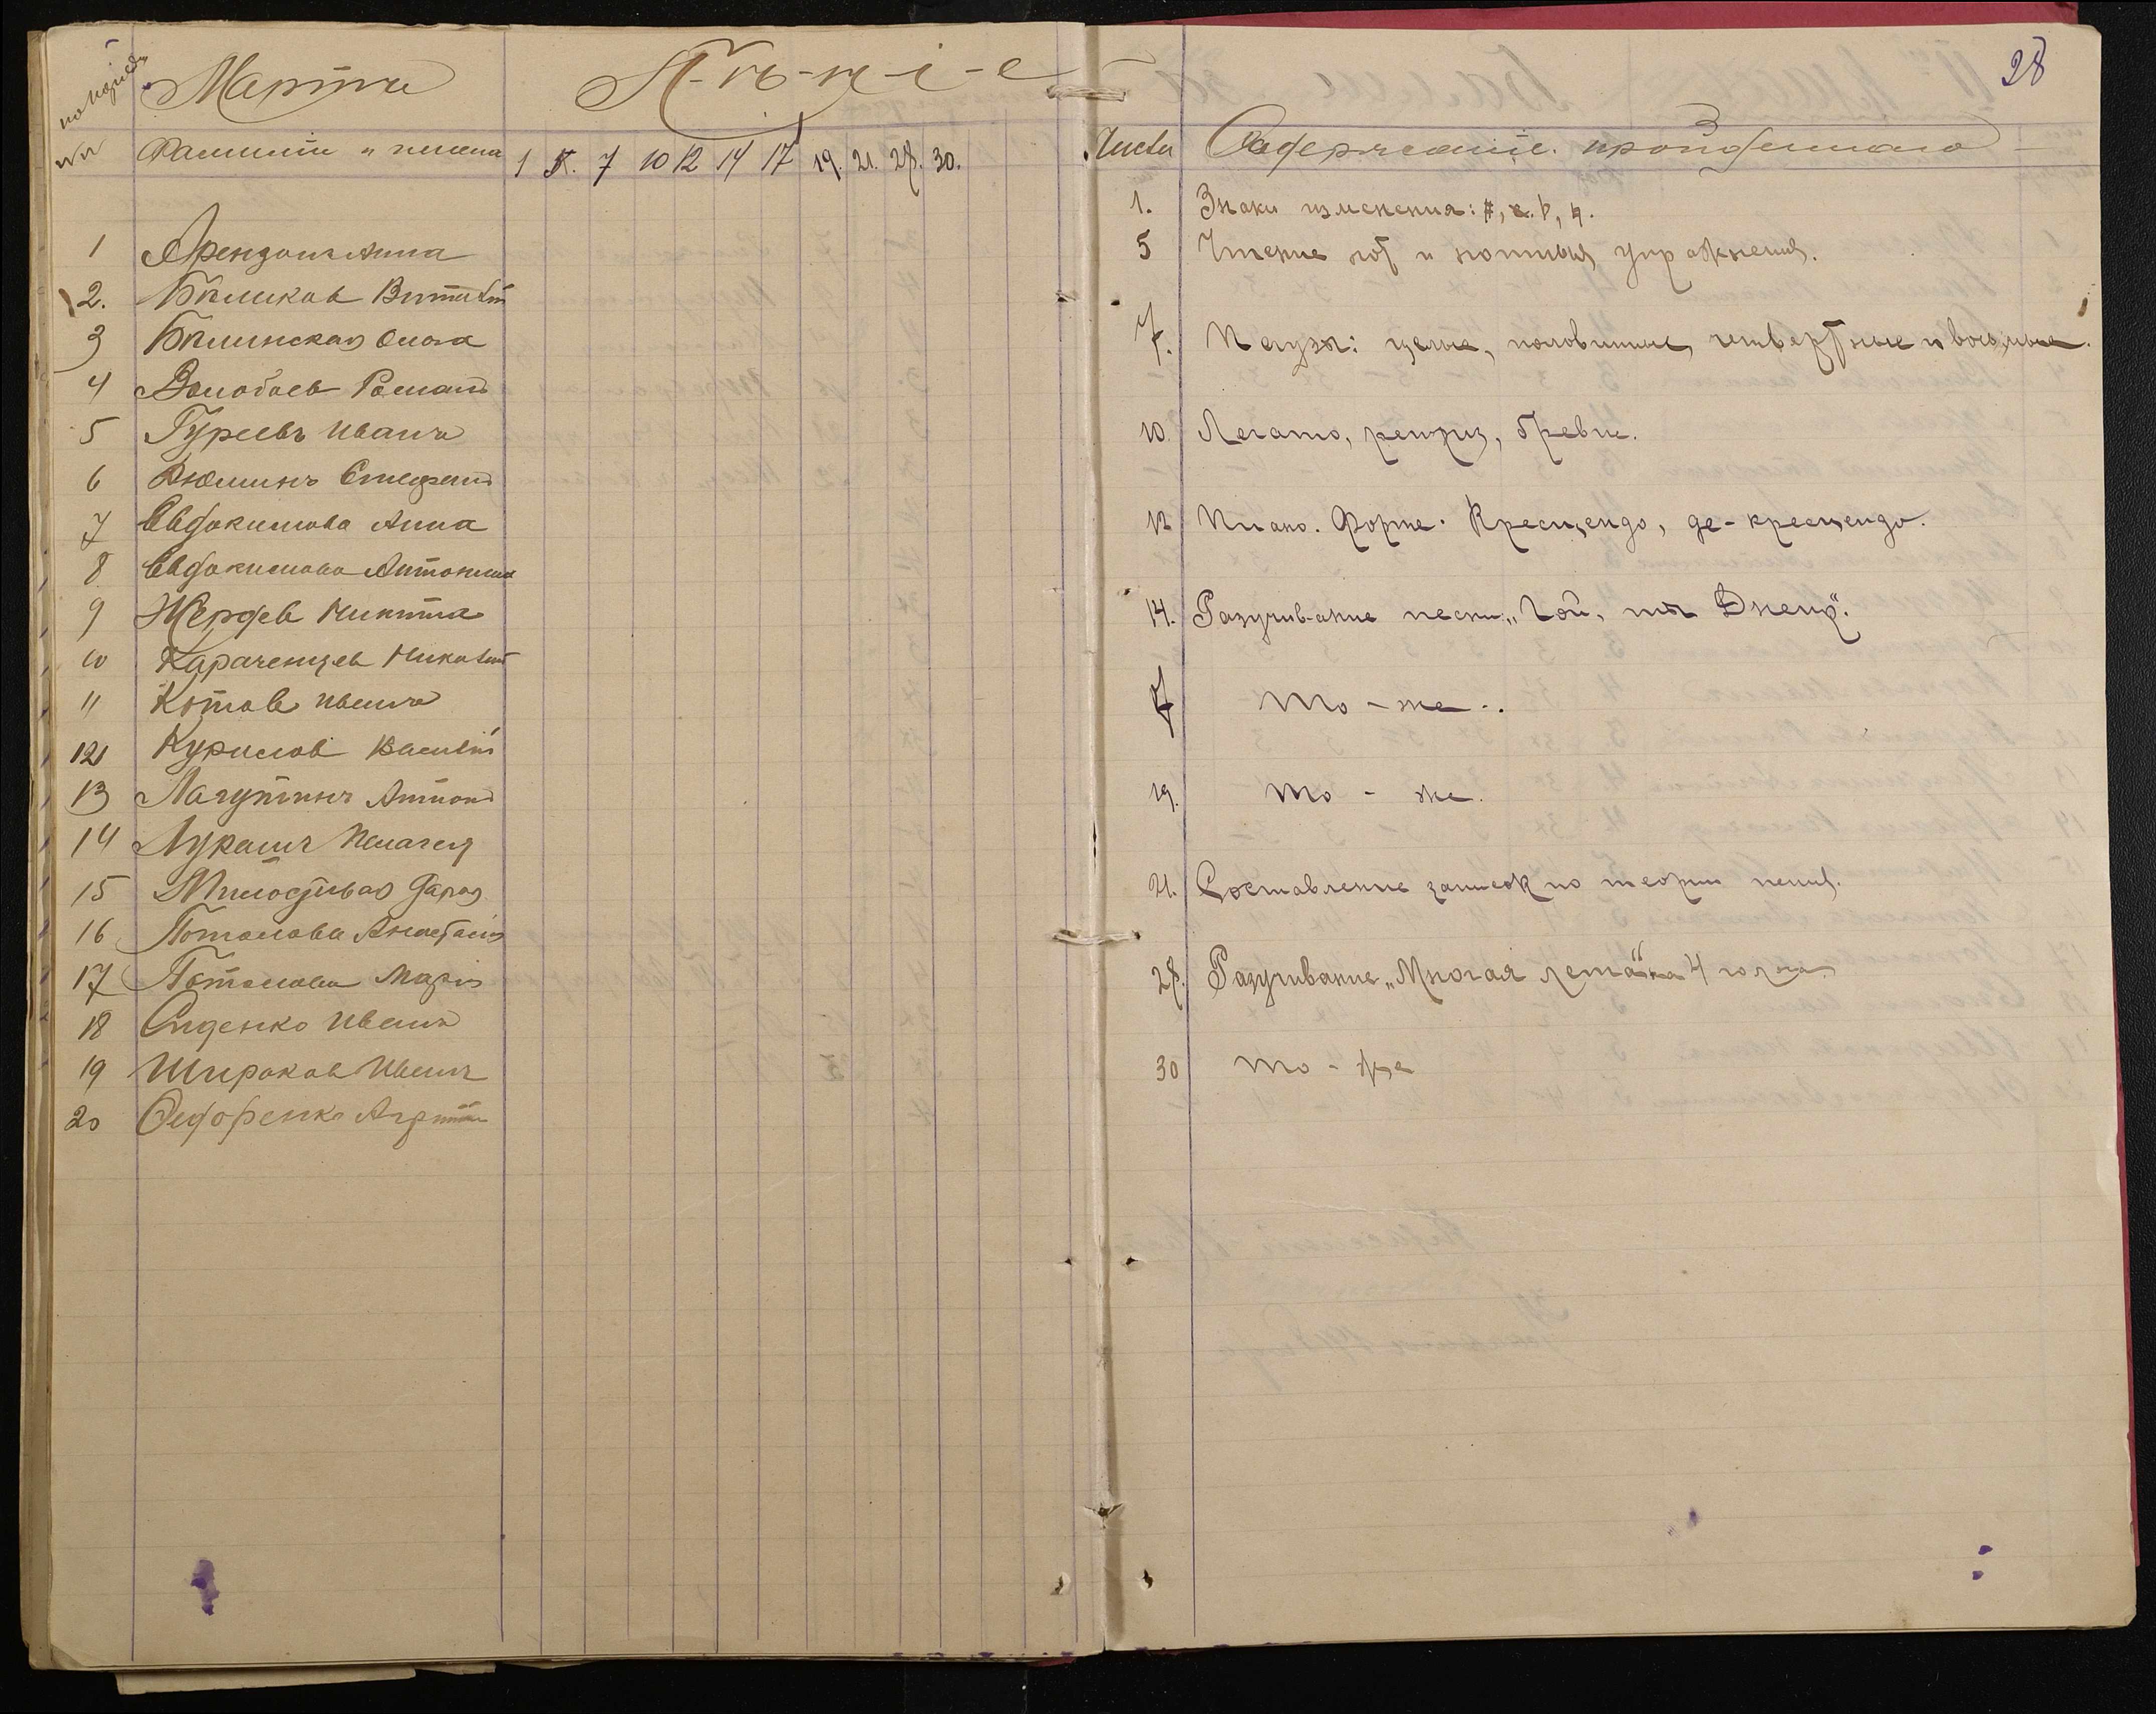 28
Мартъ П-ѣ-н-і-е
№№ Фамиліи и имена 1 5. 7 10 12 14 17 19. 21. 28. 30.
1 Арендачъ Анна
2. Бѣликов Виталій
3 Бѣлинская Ольга
4 Волобоев Романъ
5 Гуреевъ Иванъ
6 Дюминъ Стефанъ
7 Евдокимова Анна
8 Евдокимова Антонина
9 Жердев Никита
10 Караченцев Николай
11 Котов Иванъ
12 Курилов Василій
13 Лагутинъ Антонъ
14 Лукашъ Пелагея
15 Милостивая Дарья
16 Потапова Анастасія
17 Потапова Марія
18 Сиденко Иванъ
19 Широков Иванъ
20 Федоренко
Числа Содержаніе пройденнаго
1. Знаки изменения: #, х. b, ♮.
5 Чтение нот и нотныя упражнения.
7. Паузы: целые, половинные, четвертные и восьмые.
10. Легато, реприз, бревис.
12 Пиано. Форте. Кресцендо, де-кресцендо.
14. Разучивание песни: „Гой, ты Днепр".
17 То - же.
19. То - же.
21. Составление записок по теории пения.
28. Разучивание „Многая лета" на 4 голоса
30 То - же